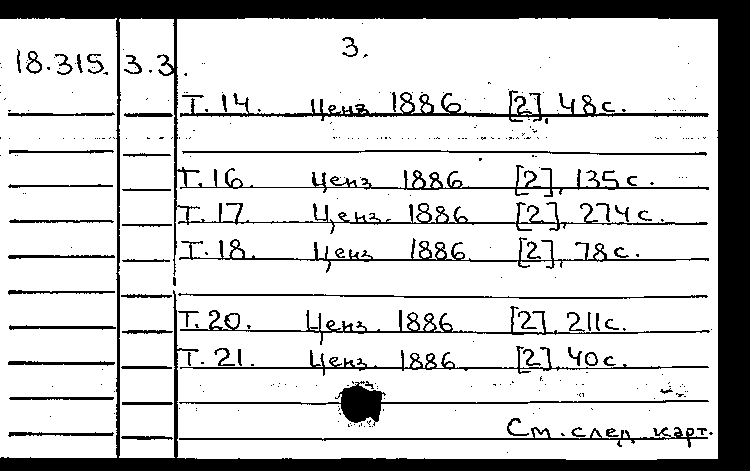 3.
18.315. 3.3.
Т. 14. Ценз 1886. [2], 48 с.
Т. 16. Ценз 1886 [2], 135 с.
Т. 17. Ценз. 1886 [2], 274 с.
Т. 18. Ценз 1886. [2], 78 с.
Т. 20. Ценз. 1886 [2]. 211 с.
Т. 21. Ценз. 1886. [2]. 40 с.
См. след карт.